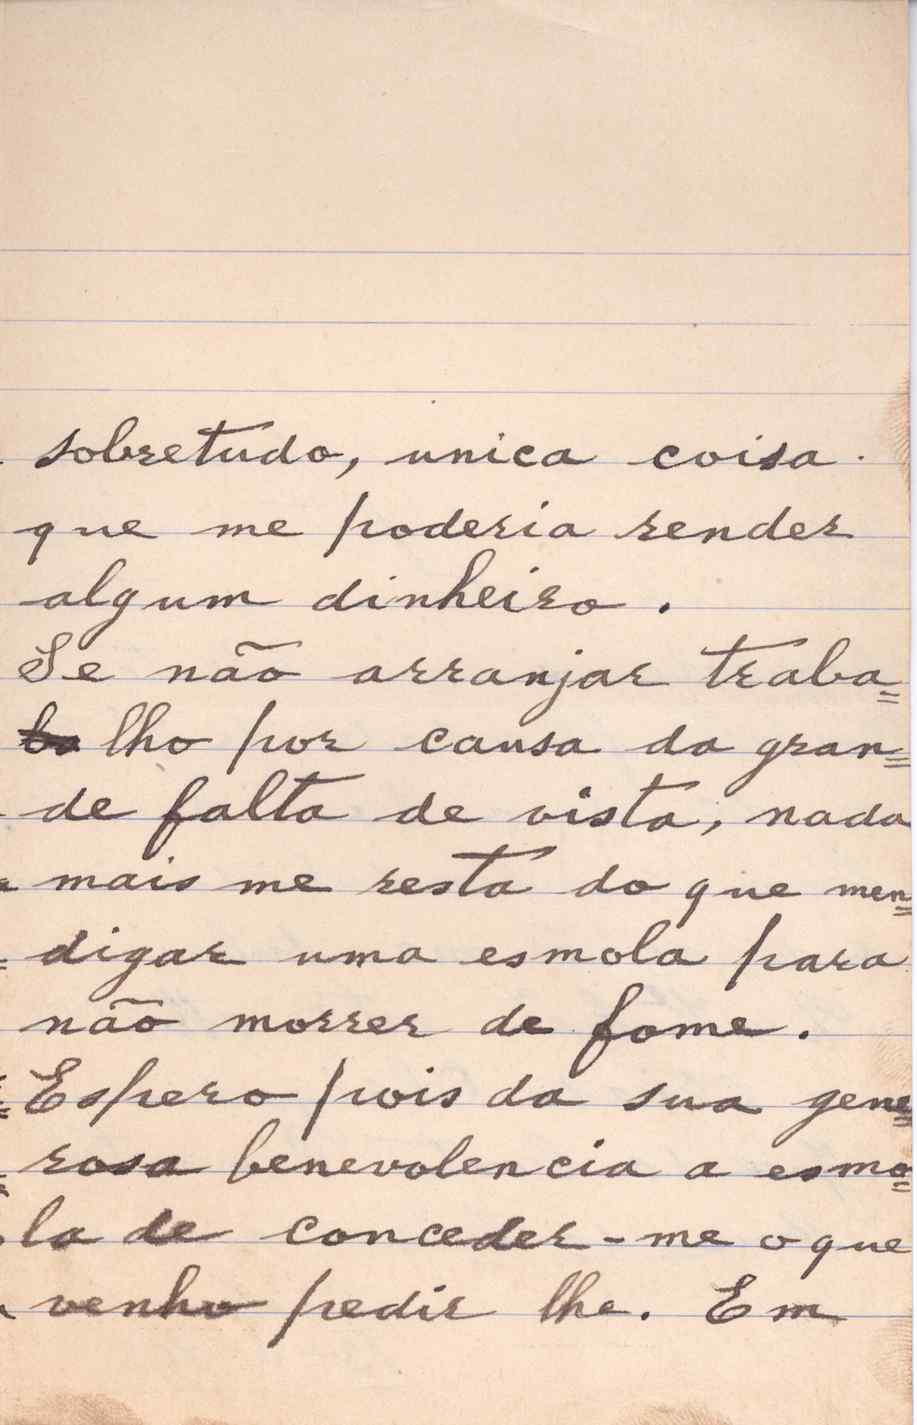 sobretudo, unica coisa
que me poderia render
algum dinheiro.
Se não arranjar traba=
lho por causa da gran=
de falta de vista, nada
mais me resta do que men=
digar uma esmola para
não morrer de fome.
Espero pois da sua gene=
rosa benevolencia a esmo=
la de conceder-me o que
venho pedir lhe. Em